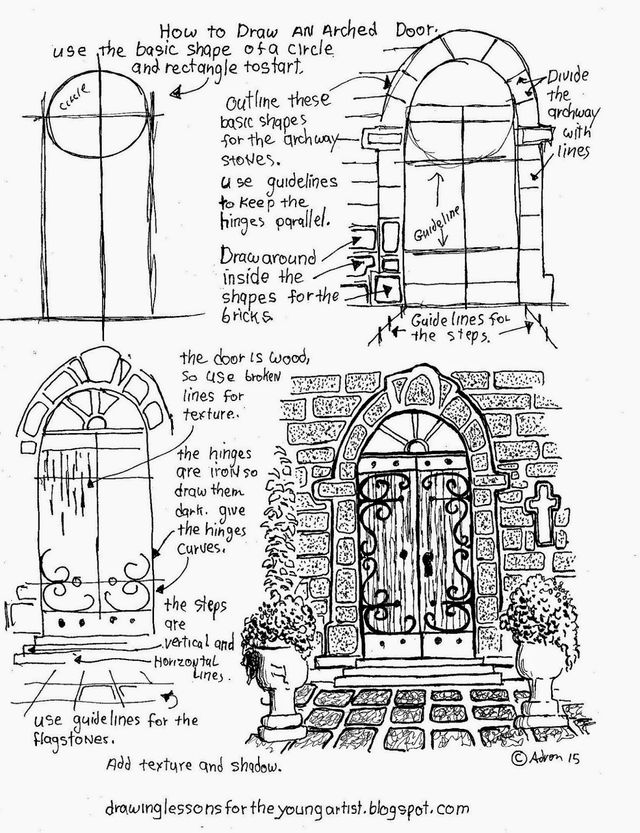 How to Draw AN Arched Door.
use the basic shape of a circle
and rectangle to start.
circle
Outline these
basic shapes
for the archway
stones.
use guidelines
to keep the
hinges parallel.
Draw around
inside the
shapes for the
bricks.
Divide
the
archway
with
lines
Guideline
Guidelines for
the steps.
the door is wood,
so use broken
lines for
texture.
the hinges
are iron so
draw them
dark. give
the hinges
curves.
the steps
are
vertical and
Horizontal
Lines.
use guidelines for the
flagstones.
Add texture and shadow.
© Adron 15
drawinglessonsfortheyoungartist.blogspot.com